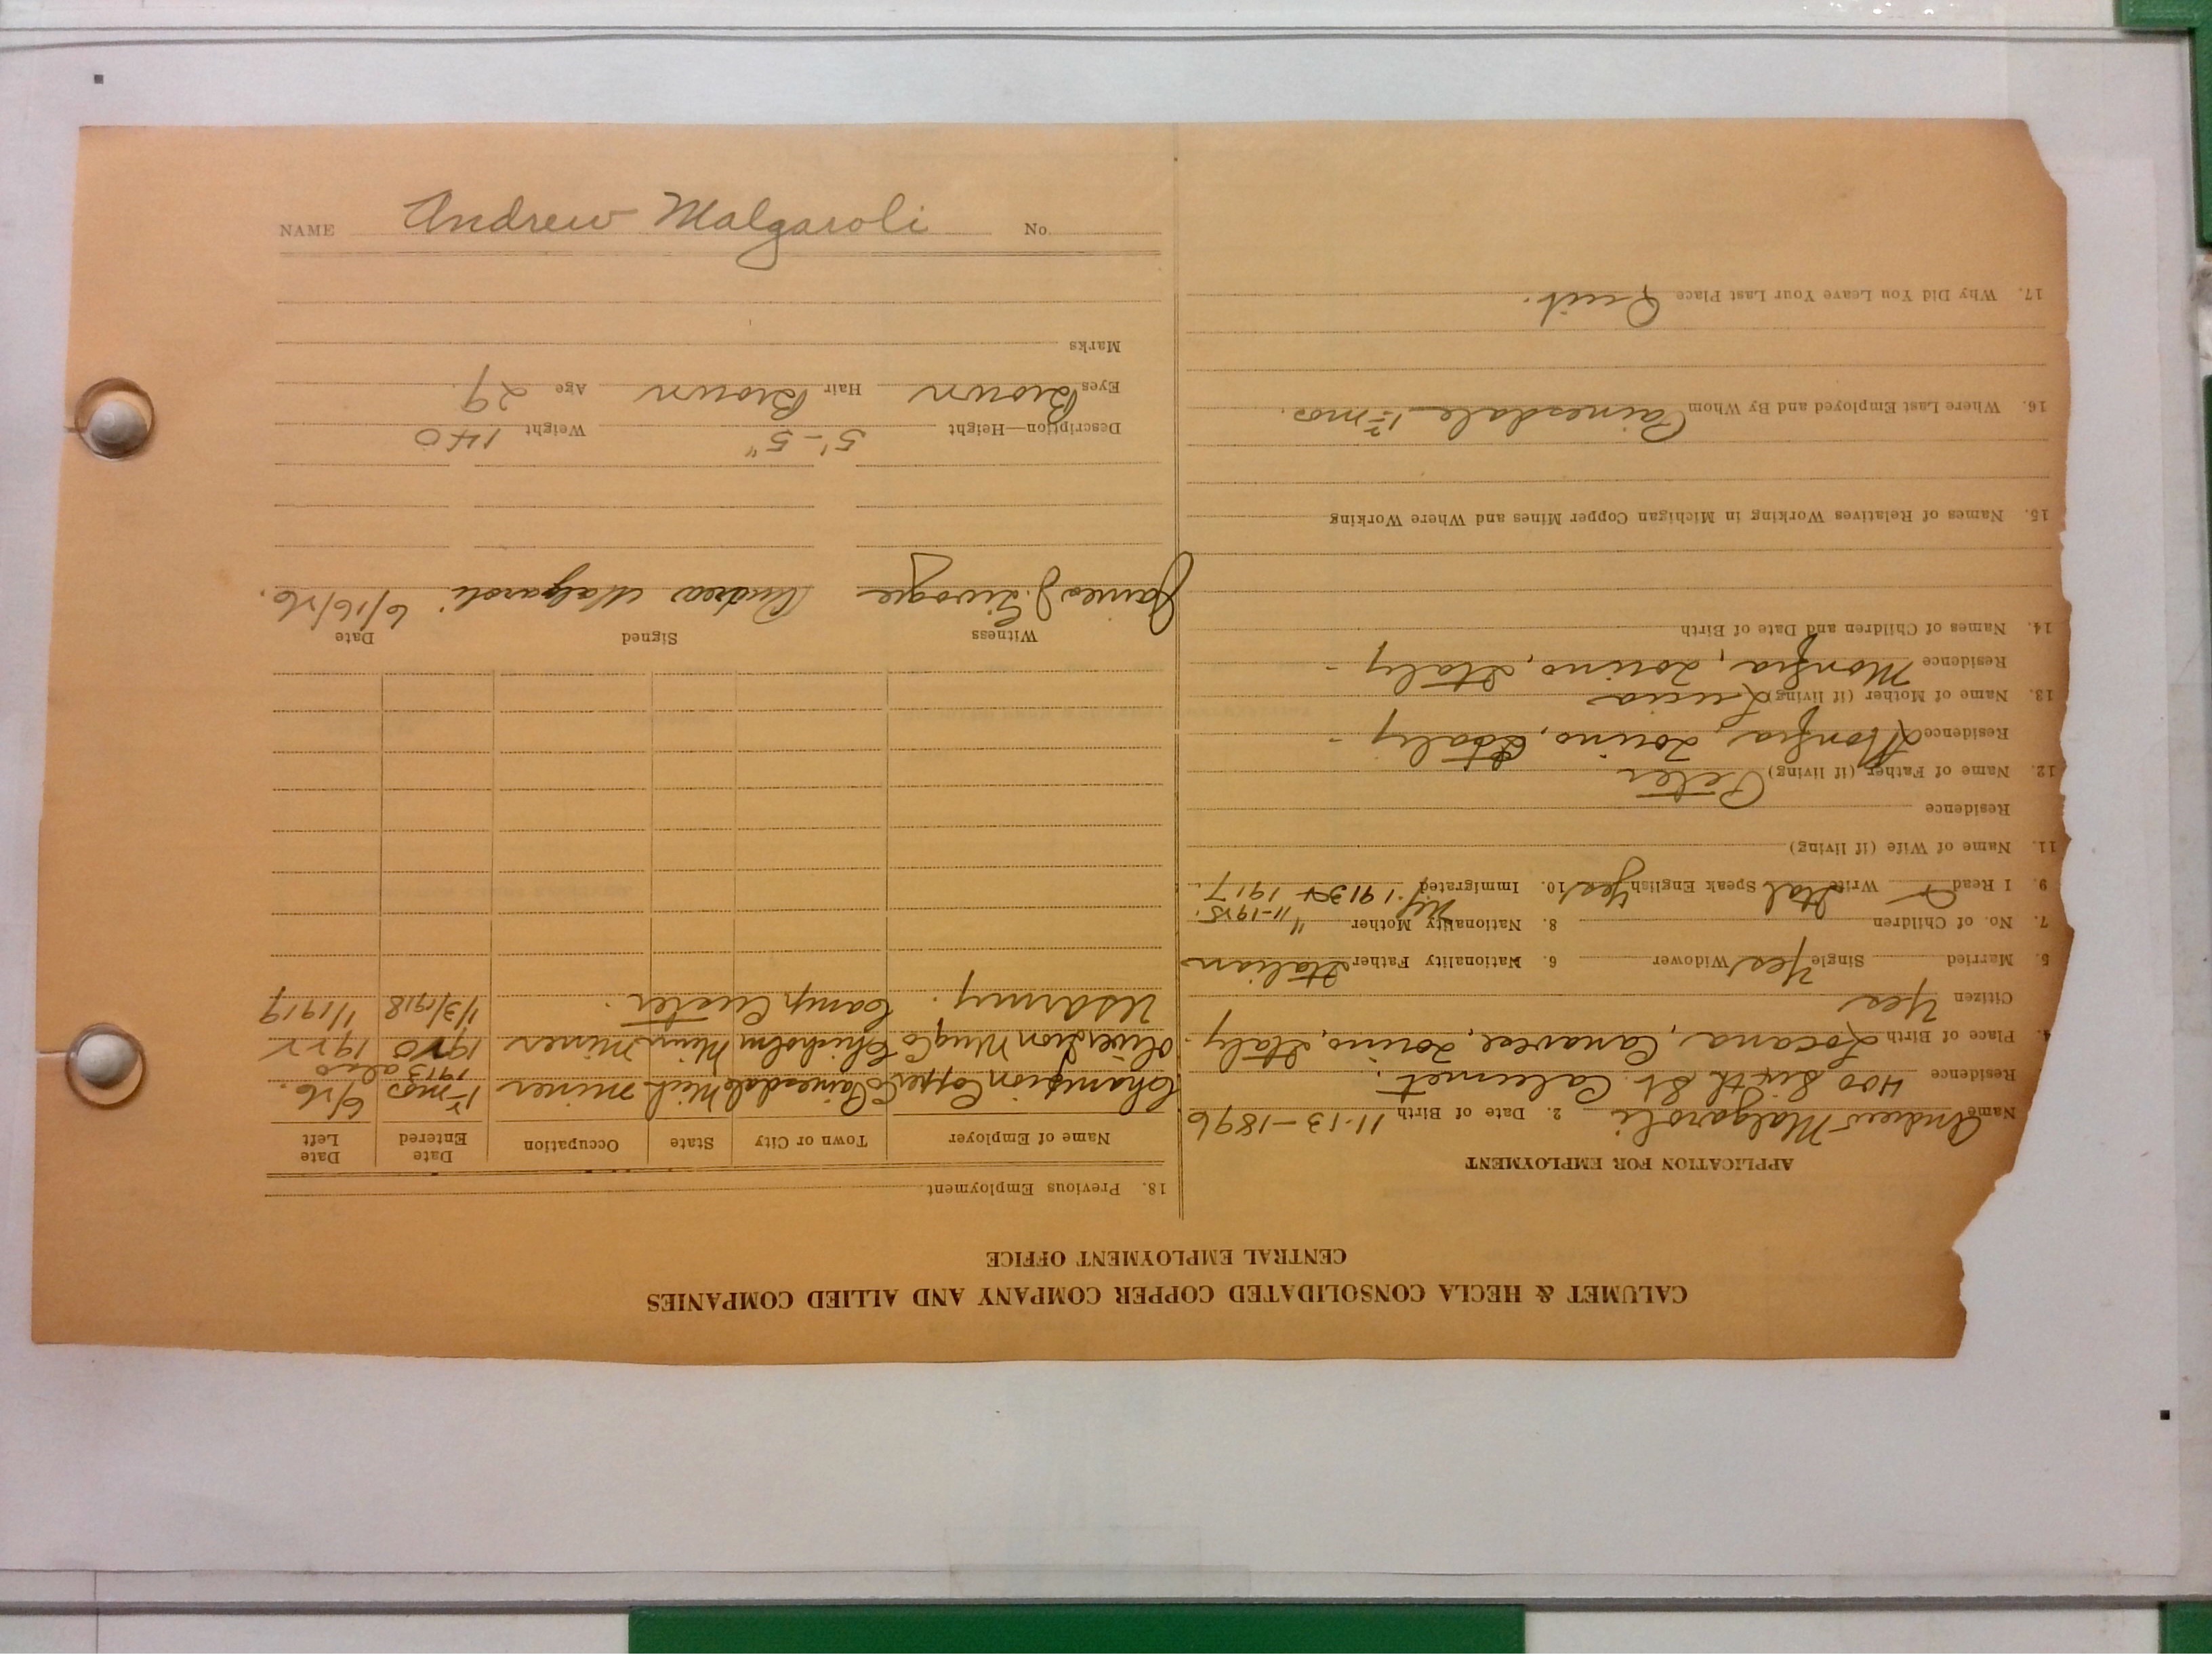 CALUMET & HECLA CONSOLIDATED COPPER COMPANY AND ALLIED COMPANIES
CENTRAL EMPLOYMENT OFFICE
APPLICATION FOR EMPLOYMENT
Name Andrew Malgaroli 2. Date of Birth 11-13-1896
Residence 400 Sixth St. Calumet.
Place of Birth Locana, Canavese, Torino, Italy.
Citizen Yes
5. Married Single Yes Widower 6. Nationality Father Italian
7. No. of Children 8. Nationality Mother
9. I Read Write Ital Speak English Yes 10. Immigrated 1913 + 1917.
11. Name of Wife (if living)
Residence
12. Name of Father (if living) Peter
Residence Torino, Italy -
13. Name of Mother (if living) Lucia
Residence Torino, Italy -
14. Names of Children and Date of Birth
15. Names of Relatives Working in Michigan Copper Mines and Where Working
16. Where Last Employed and By Whom Painesdale mos.
17. Why Did You Leave Your Last Place Quit.
18. Previous Employment
Name of Employer Town or City State Occupation Date Entered Date Left
Champion Copper Co Painesdale Mich miner mos 6/26.
1913 also
Oliver Iron Mng Co Chisholm Minn miner 1920 1922
US Army. Camp Custer. 1/3/1918 1/1919
Witness Signed Date
James J. Andrea Malgaroli 6/16/26.
Description—Height 5'-5" Weight 140
Eyes Brown Hair Brown Age 29.
Marks
NAME Andrew Malgaroli No.